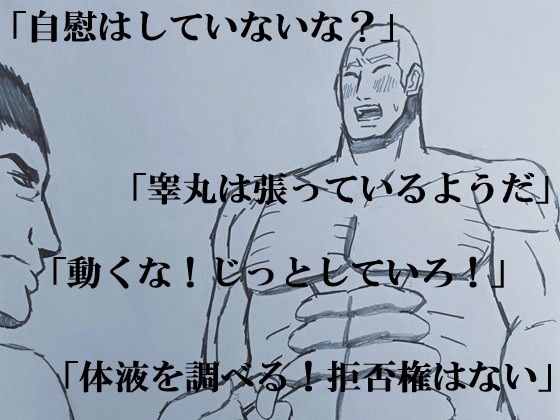 「自慰はしていないな？」
「睾丸は張っているようだ」
「動くな！じっとしていろ！」
「体液を調べる！拒否権はない」